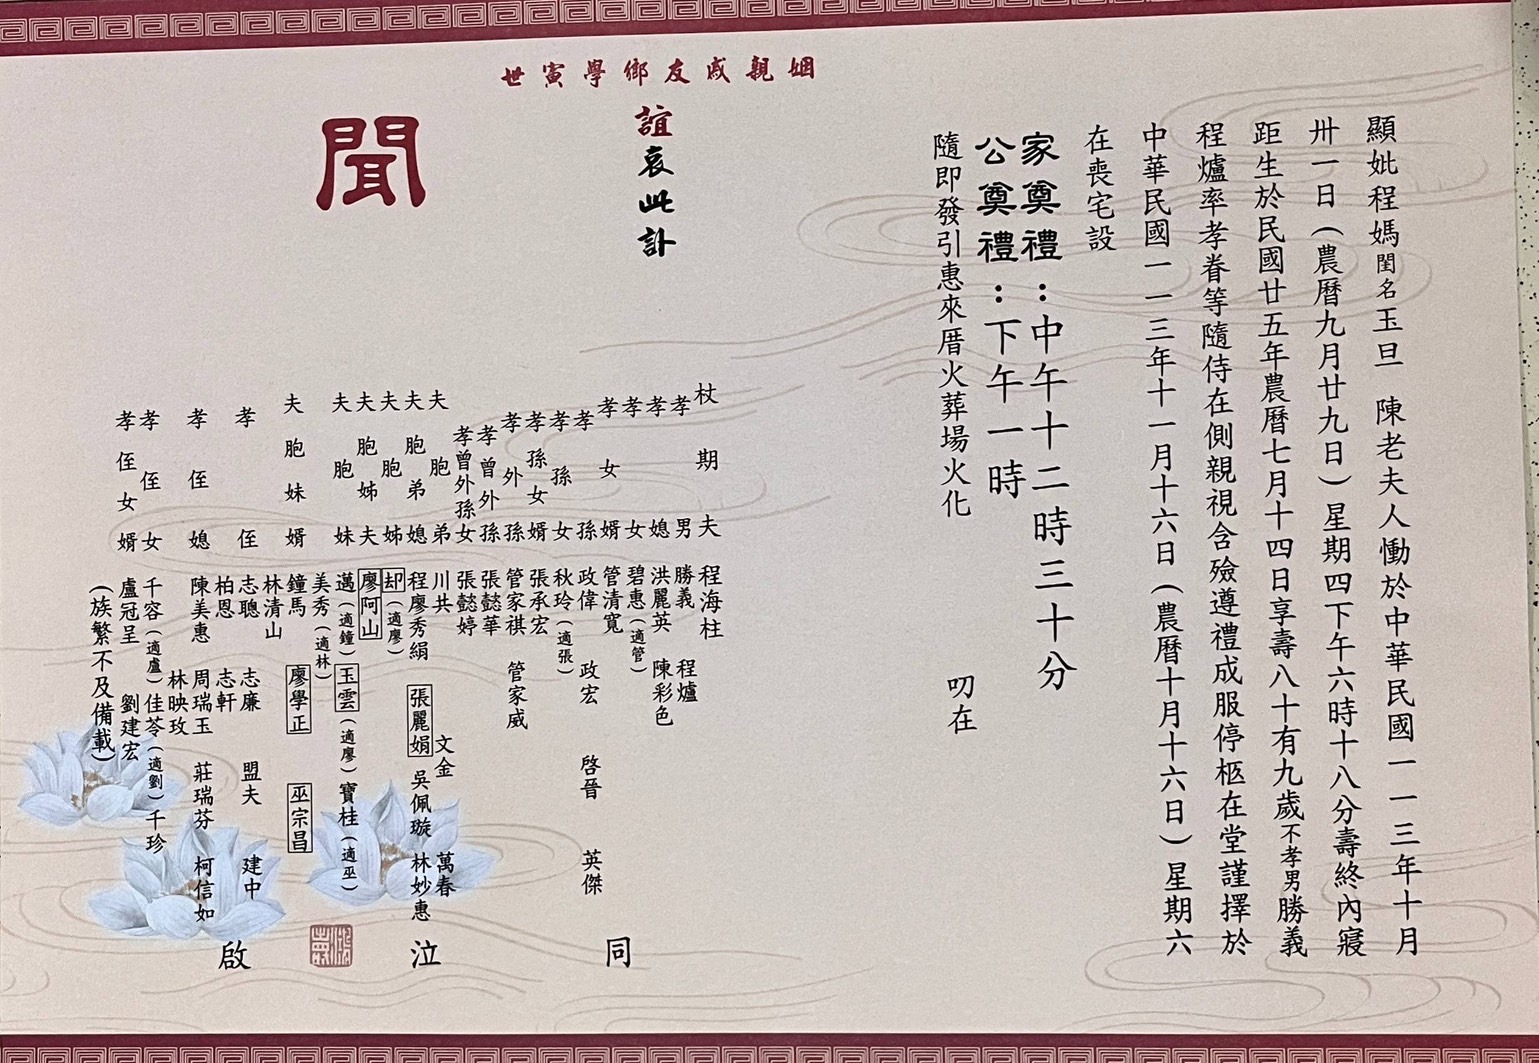 顯妣程媽閨名玉旦　陳老夫人慟於中華民國一一三年十月
卅一日(農曆九月廿九日)星期四下午六時十八分壽終內寢
距生於民國廿五年農曆七月十四日享壽八十有九歲不孝男勝義
程爐率孝眷等隨侍在側親視含殮遵禮成服停柩在堂謹擇於
中華民國一一三年十一月十六日(農曆十月十六日)星期六
在喪宅設
家奠禮：中午十二時三十分
公奠禮：下午一時
隨即發引惠來厝火葬場火化　叨在
姻親戚友鄉學寅世
誼哀此訃
聞
杖期夫　程海柱
孝男　勝義　程爐
孝媳　洪麗英　陳彩色
孝女　碧惠(適管)
孝女婿　管清寬
孝孫　政偉　政宏　啓晉　英傑
孝孫女　秋玲(適張)
孝孫女婿　張承宏
孝外孫　管家祺　管家威
孝曾外孫　張懿華
孝曾外孫女　張懿婷
夫胞弟　川共　文金　萬春
夫胞弟媳　程廖秀絹　張麗娟　吳佩璇　林妙惠
夫胞姊　却(適廖)
夫胞姊夫　廖阿山
夫胞妹　邁(適鐘)　玉雲(適廖)　寶桂(適巫)
美秀(適林)
夫胞妹婿　鐘馬　廖學正　巫宗昌
林清山
孝侄　志聰　志廉　盟夫　建中
柏恩　志軒
孝侄媳　陳美惠　周瑞玉　莊瑞芬　柯信如
林映玫
孝侄女　千容(適盧)　佳苓(適劉)　千珍
孝侄女婿　盧冠呈　劉建宏
(族繁不及備載)
同
泣
啟